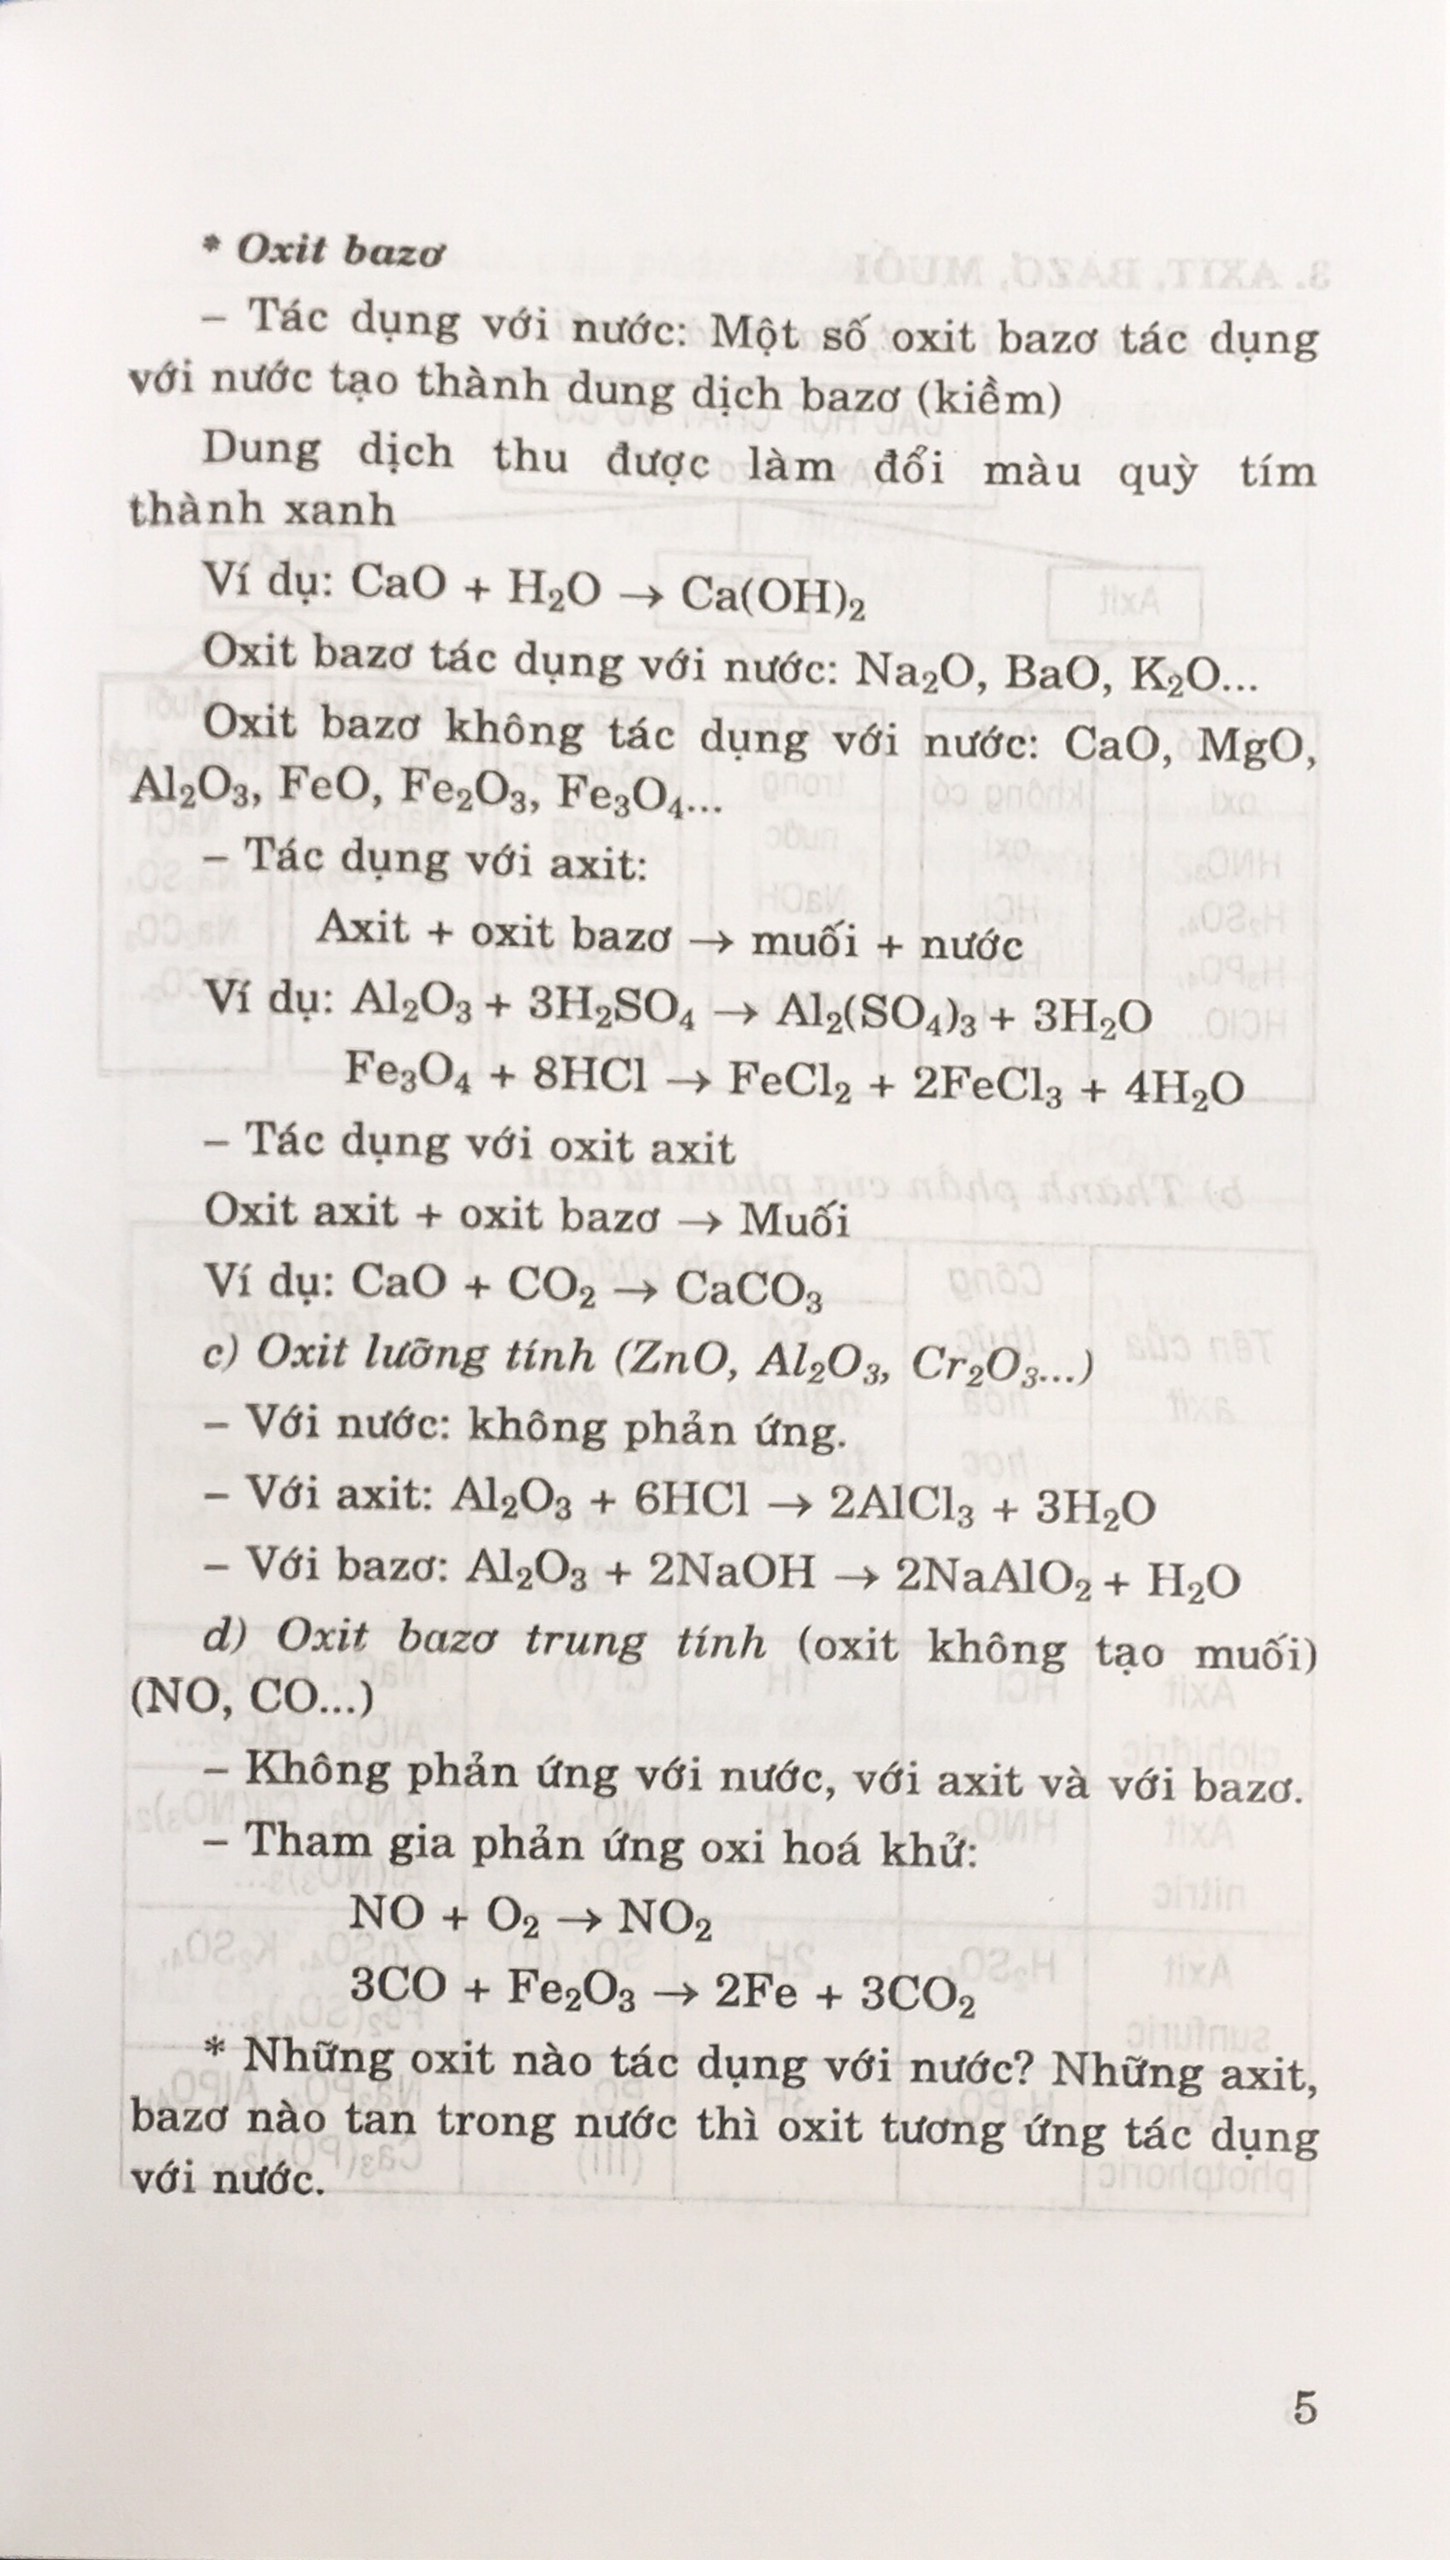 * Oxit bazơ
– Tác dụng với nước: Một số oxit bazơ tác dụng
với nước tạo thành dung dịch bazơ (kiềm)
Dung dịch thu được làm đổi màu quỳ tím
thành xanh
Ví dụ: CaO + H₂O → Ca(OH)₂
Oxit bazơ tác dụng với nước: Na₂O, BaO, K₂O...
Oxit bazơ không tác dụng với nước: CaO, MgO,
Al₂O₃, FeO, Fe₂O₃, Fe₃O₄...
– Tác dụng với axit:
Axit + oxit bazơ → muối + nước
Ví dụ: Al₂O₃ + 3H₂SO₄ → Al₂(SO₄)₃ + 3H₂O
Fe₃O₄ + 8HCl → FeCl₂ + 2FeCl₃ + 4H₂O
– Tác dụng với oxit axit
Oxit axit + oxit bazơ → Muối
Ví dụ: CaO + CO₂ → CaCO₃
c) Oxit lưỡng tính (ZnO, Al₂O₃, Cr₂O₃...)
– Với nước: không phản ứng.
– Với axit: Al₂O₃ + 6HCl → 2AlCl₃ + 3H₂O
– Với bazơ: Al₂O₃ + 2NaOH → 2NaAlO₂ + H₂O
d) Oxit bazơ trung tính (oxit không tạo muối)
(NO, CO...)
– Không phản ứng với nước, với axit và với bazơ.
– Tham gia phản ứng oxi hoá khử:
NO + O₂ → NO₂
3CO + Fe₂O₃ → 2Fe + 3CO₂
* Những oxit nào tác dụng với nước? Những axit,
bazơ nào tan trong nước thì oxit tương ứng tác dụng
với nước.
5